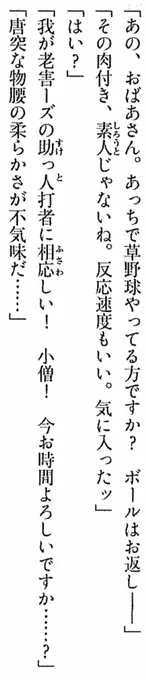 「あの、おばあさん。あっちで草野球やってる方ですか？　ボールはお返し――」
「その肉付き、素人じゃないね。反応速度もいい。気に入ったッ」
「はい？」
「我が老害ーズの助っ人打者に相応しい！　小僧！　今お時間よろしいですか……？」
「唐突な物腰の柔らかさが不気味だ……」